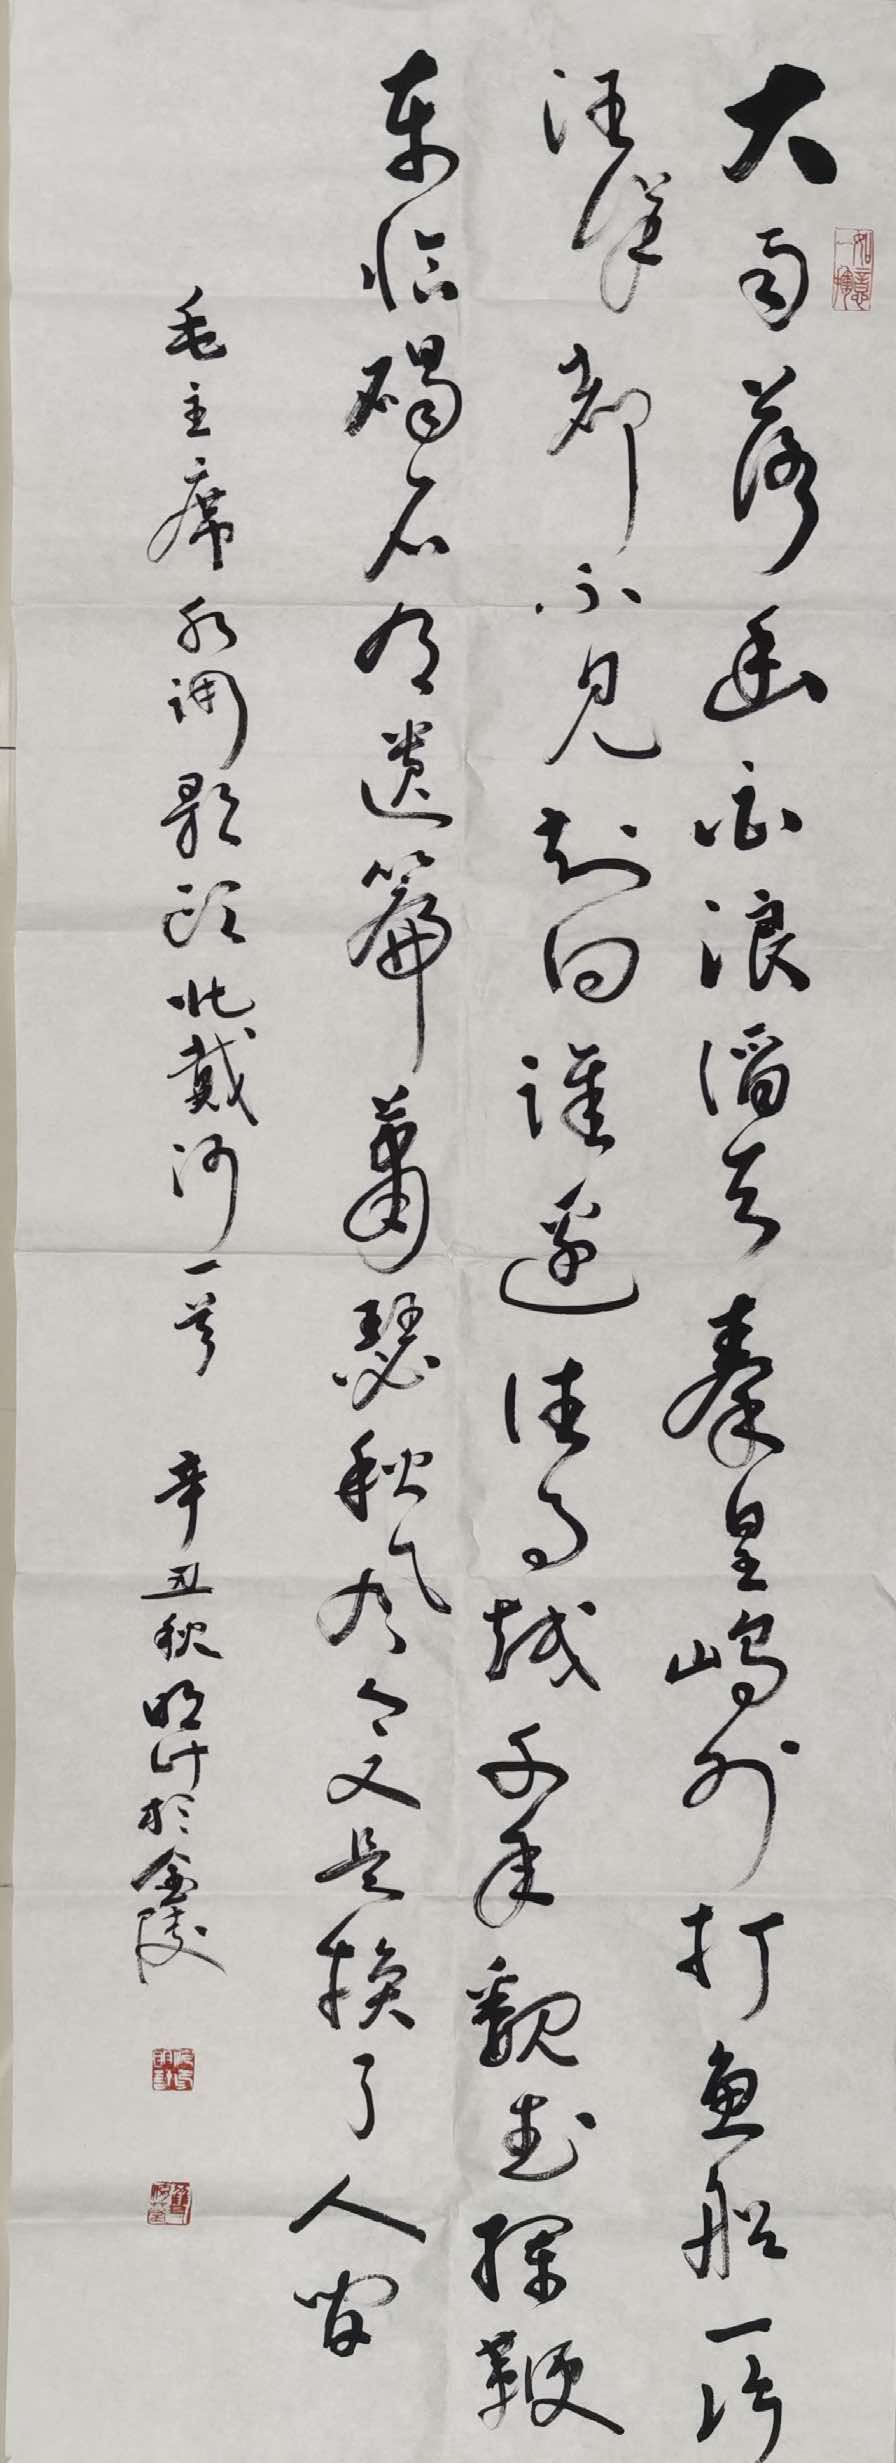 大雨落幽燕白浪滔天秦皇島外打魚船一片
汪洋都不見知向誰邊往事越千年魏武揮鞭
東臨碣石有遺篇蕭瑟秋風今又是換了人間
毛主席水調歌頭北戴河一首 辛丑秋明計於金陵
如意